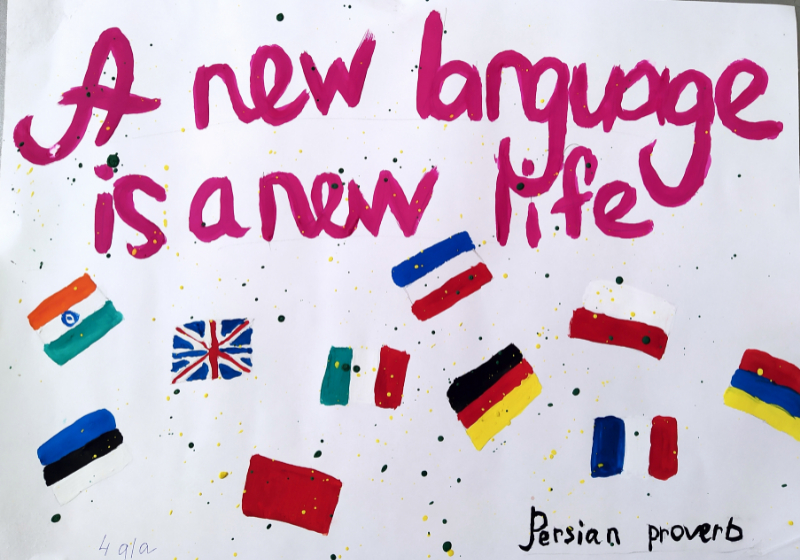 A new language
is a new life
Persian proverb